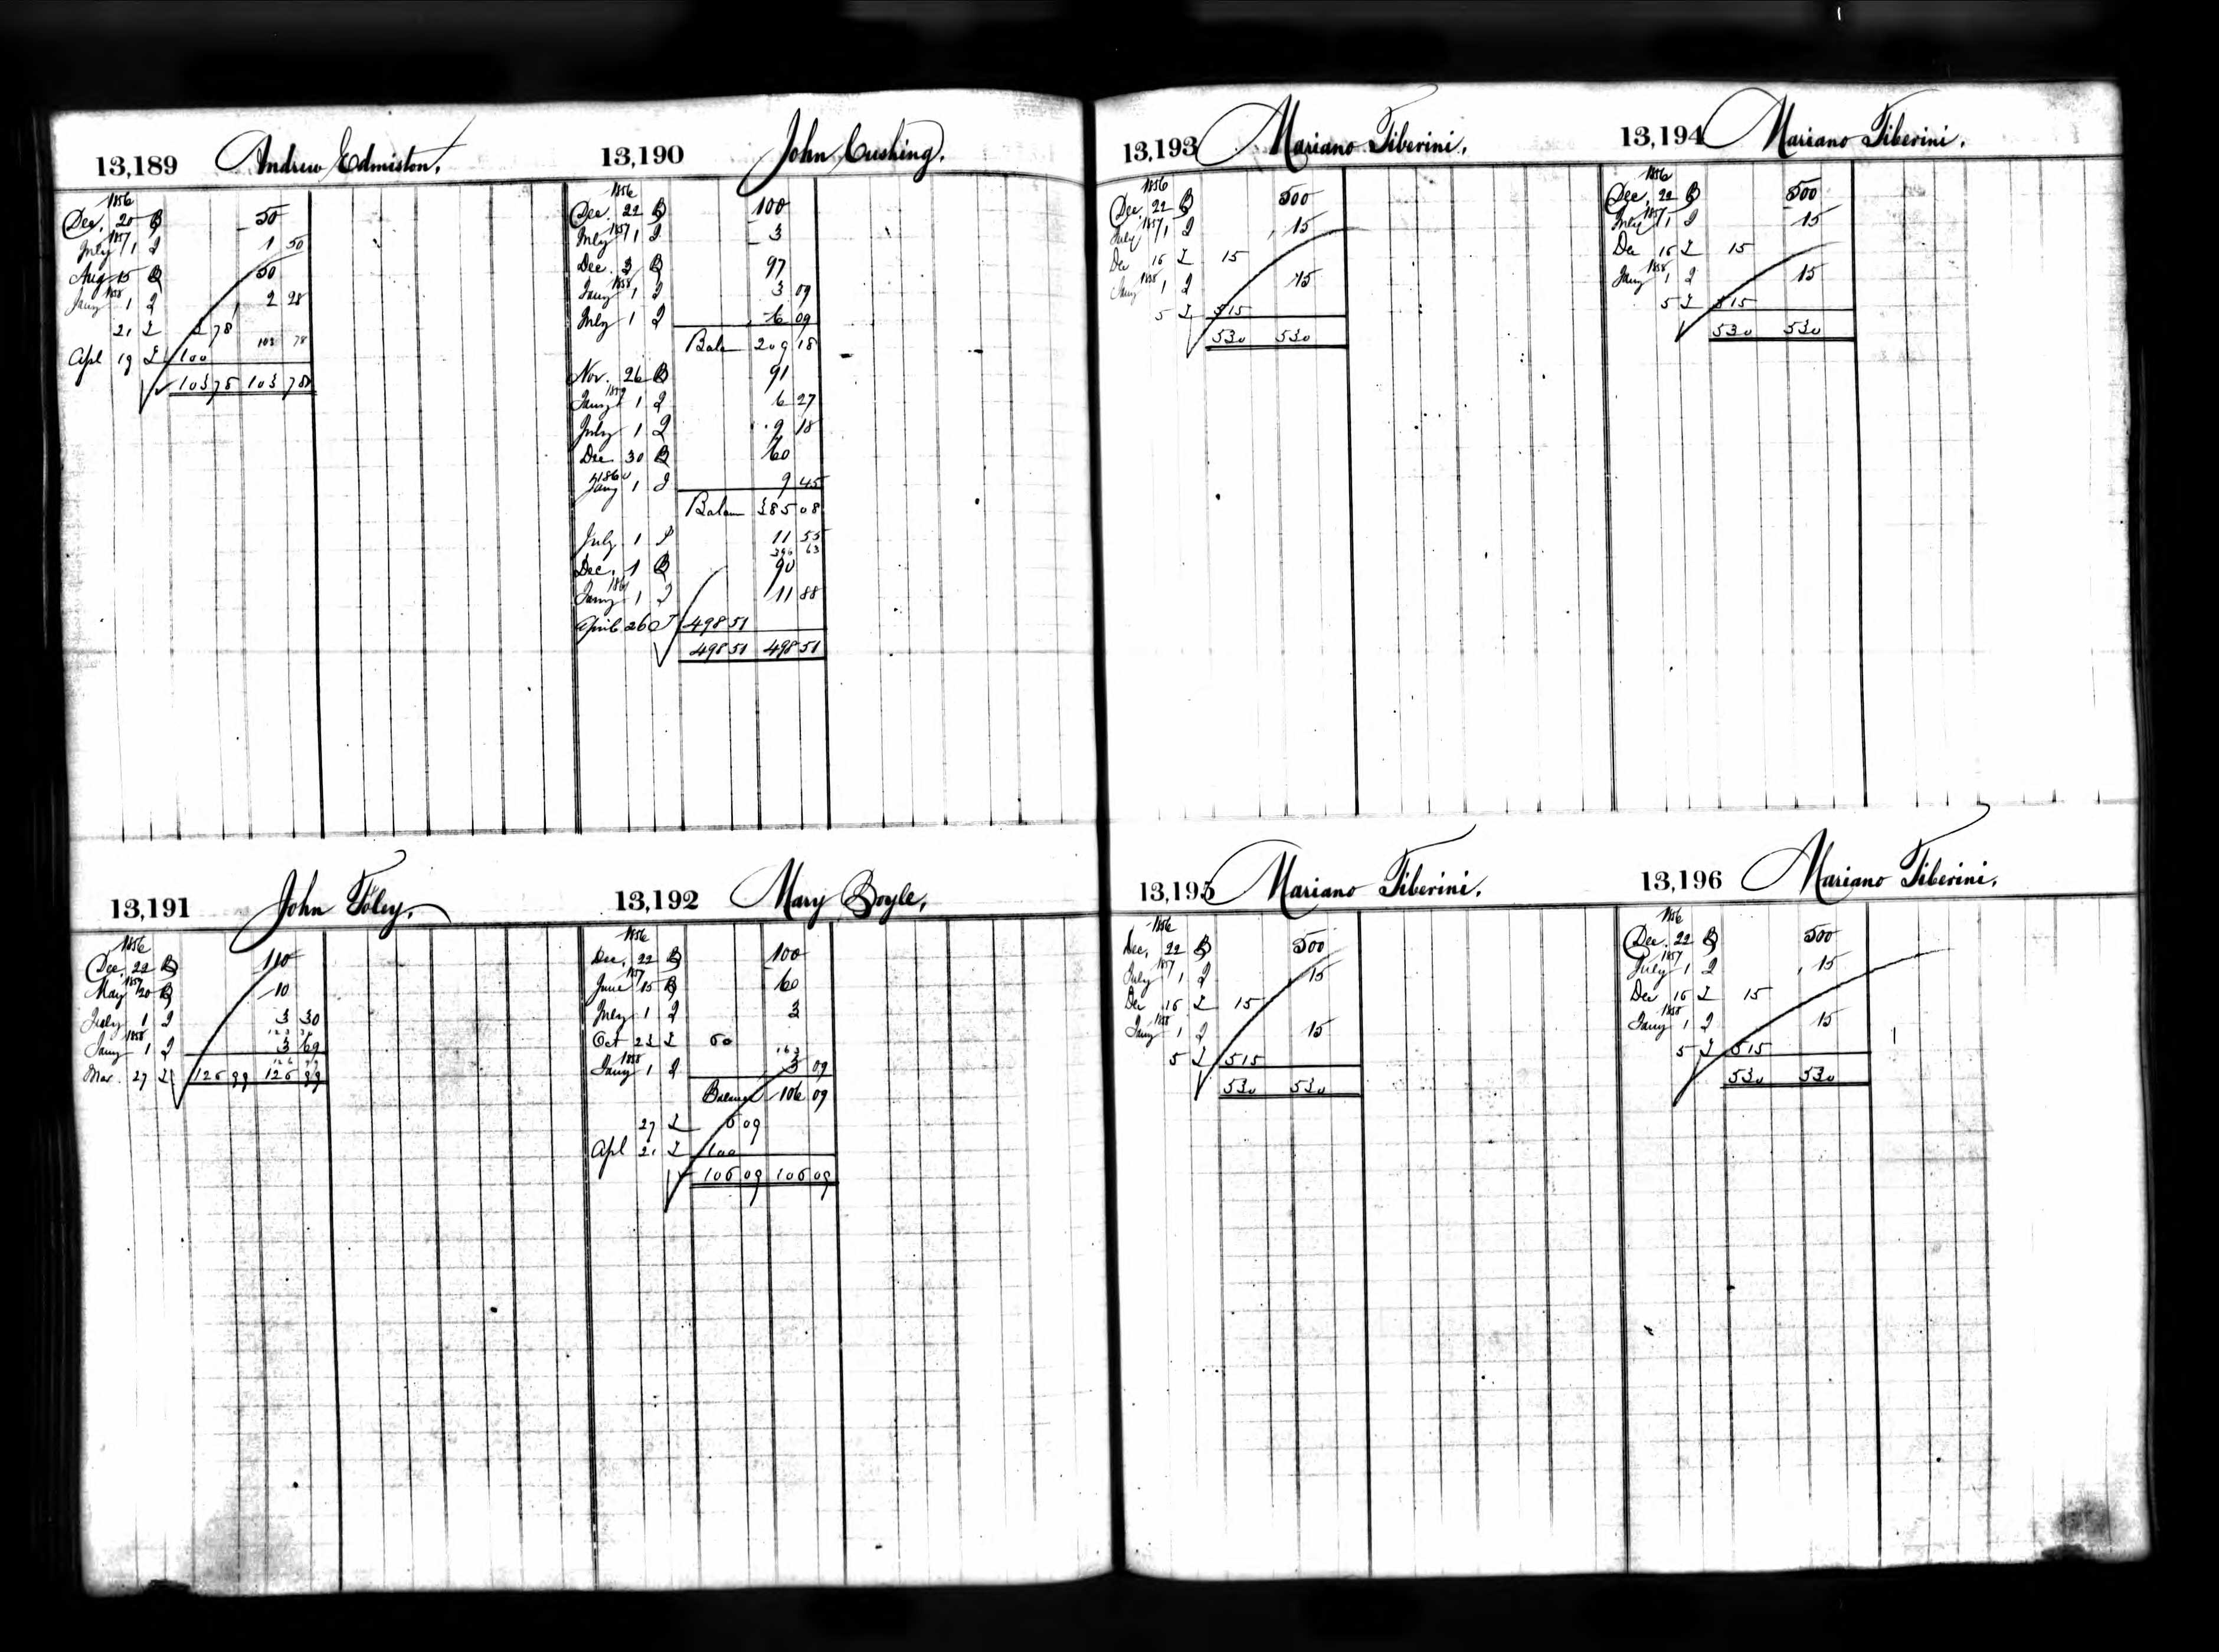 13,189 Andrew Edmiston.
1856
Dec. 20 B 50
1857
July 1 I 1 50
Aug 15 B 50
1858
Jany 1 I 2 28
21 I 3 78
103 78
Apl 19 I 100
103 78 103 78
13,190 John Cushing.
1856
Dec. 22 B 100
1857
July 1 I 3
Dec. 3 B 97
1858
Jany 1 I 3 09
July 1 I 6 09
Balan 209 18
Nov. 26 B 91
1859
Jany 1 I 6 27
July 1 I 9 18
Dec 30 B 60
1860
Jany 1 I 9 45
Balan 385 08
July 1 I 11 55
396 63
Dec. 1 B 90
1861
Jany 1 I 11 88
April 26 498 51
498 51 498 51
13,191 John Foley.
1856
Dec. 22 B 110
1857
May 20 B 10
July 1 I 3 30
123 30
1858
Jany 1 I 3 69
126 99
Mar. 27 I 126 99 126 99
13,192 Mary Boyle,
1856
Dec. 22 B 100
1857
June 15 B 60
July 1 I 3
Oct 23 I 60
163
1858
Jany 1 I 3 09
Balance 106 09
27 I 6 09
Apl 21 I 100
106 09 106 09
13,193 Mariano Tiberini.
1856
Dec. 22 B 500
1857
July 1 I 15
Dec 16 I 15
1858
Jany 1 I 15
5 I 515
530 530
13,194 Mariano Tiberini.
1856
Dec. 22 B 500
1857
July 1 I 15
Dec 16 I 15
1858
Jany 1 I 15
5 I 515
530 530
13,195 Mariano Tiberini.
1856
Dec. 22 B 500
1857
July 1 I 15
Dec 16 I 15
1858
Jany 1 I 15
5 I 515
530 530
13,196 Mariano Tiberini.
1856
Dec. 22 B 500
1857
July 1 I 15
Dec 16 I 15
1858
Jany 1 I 15
5 I 515
530 530